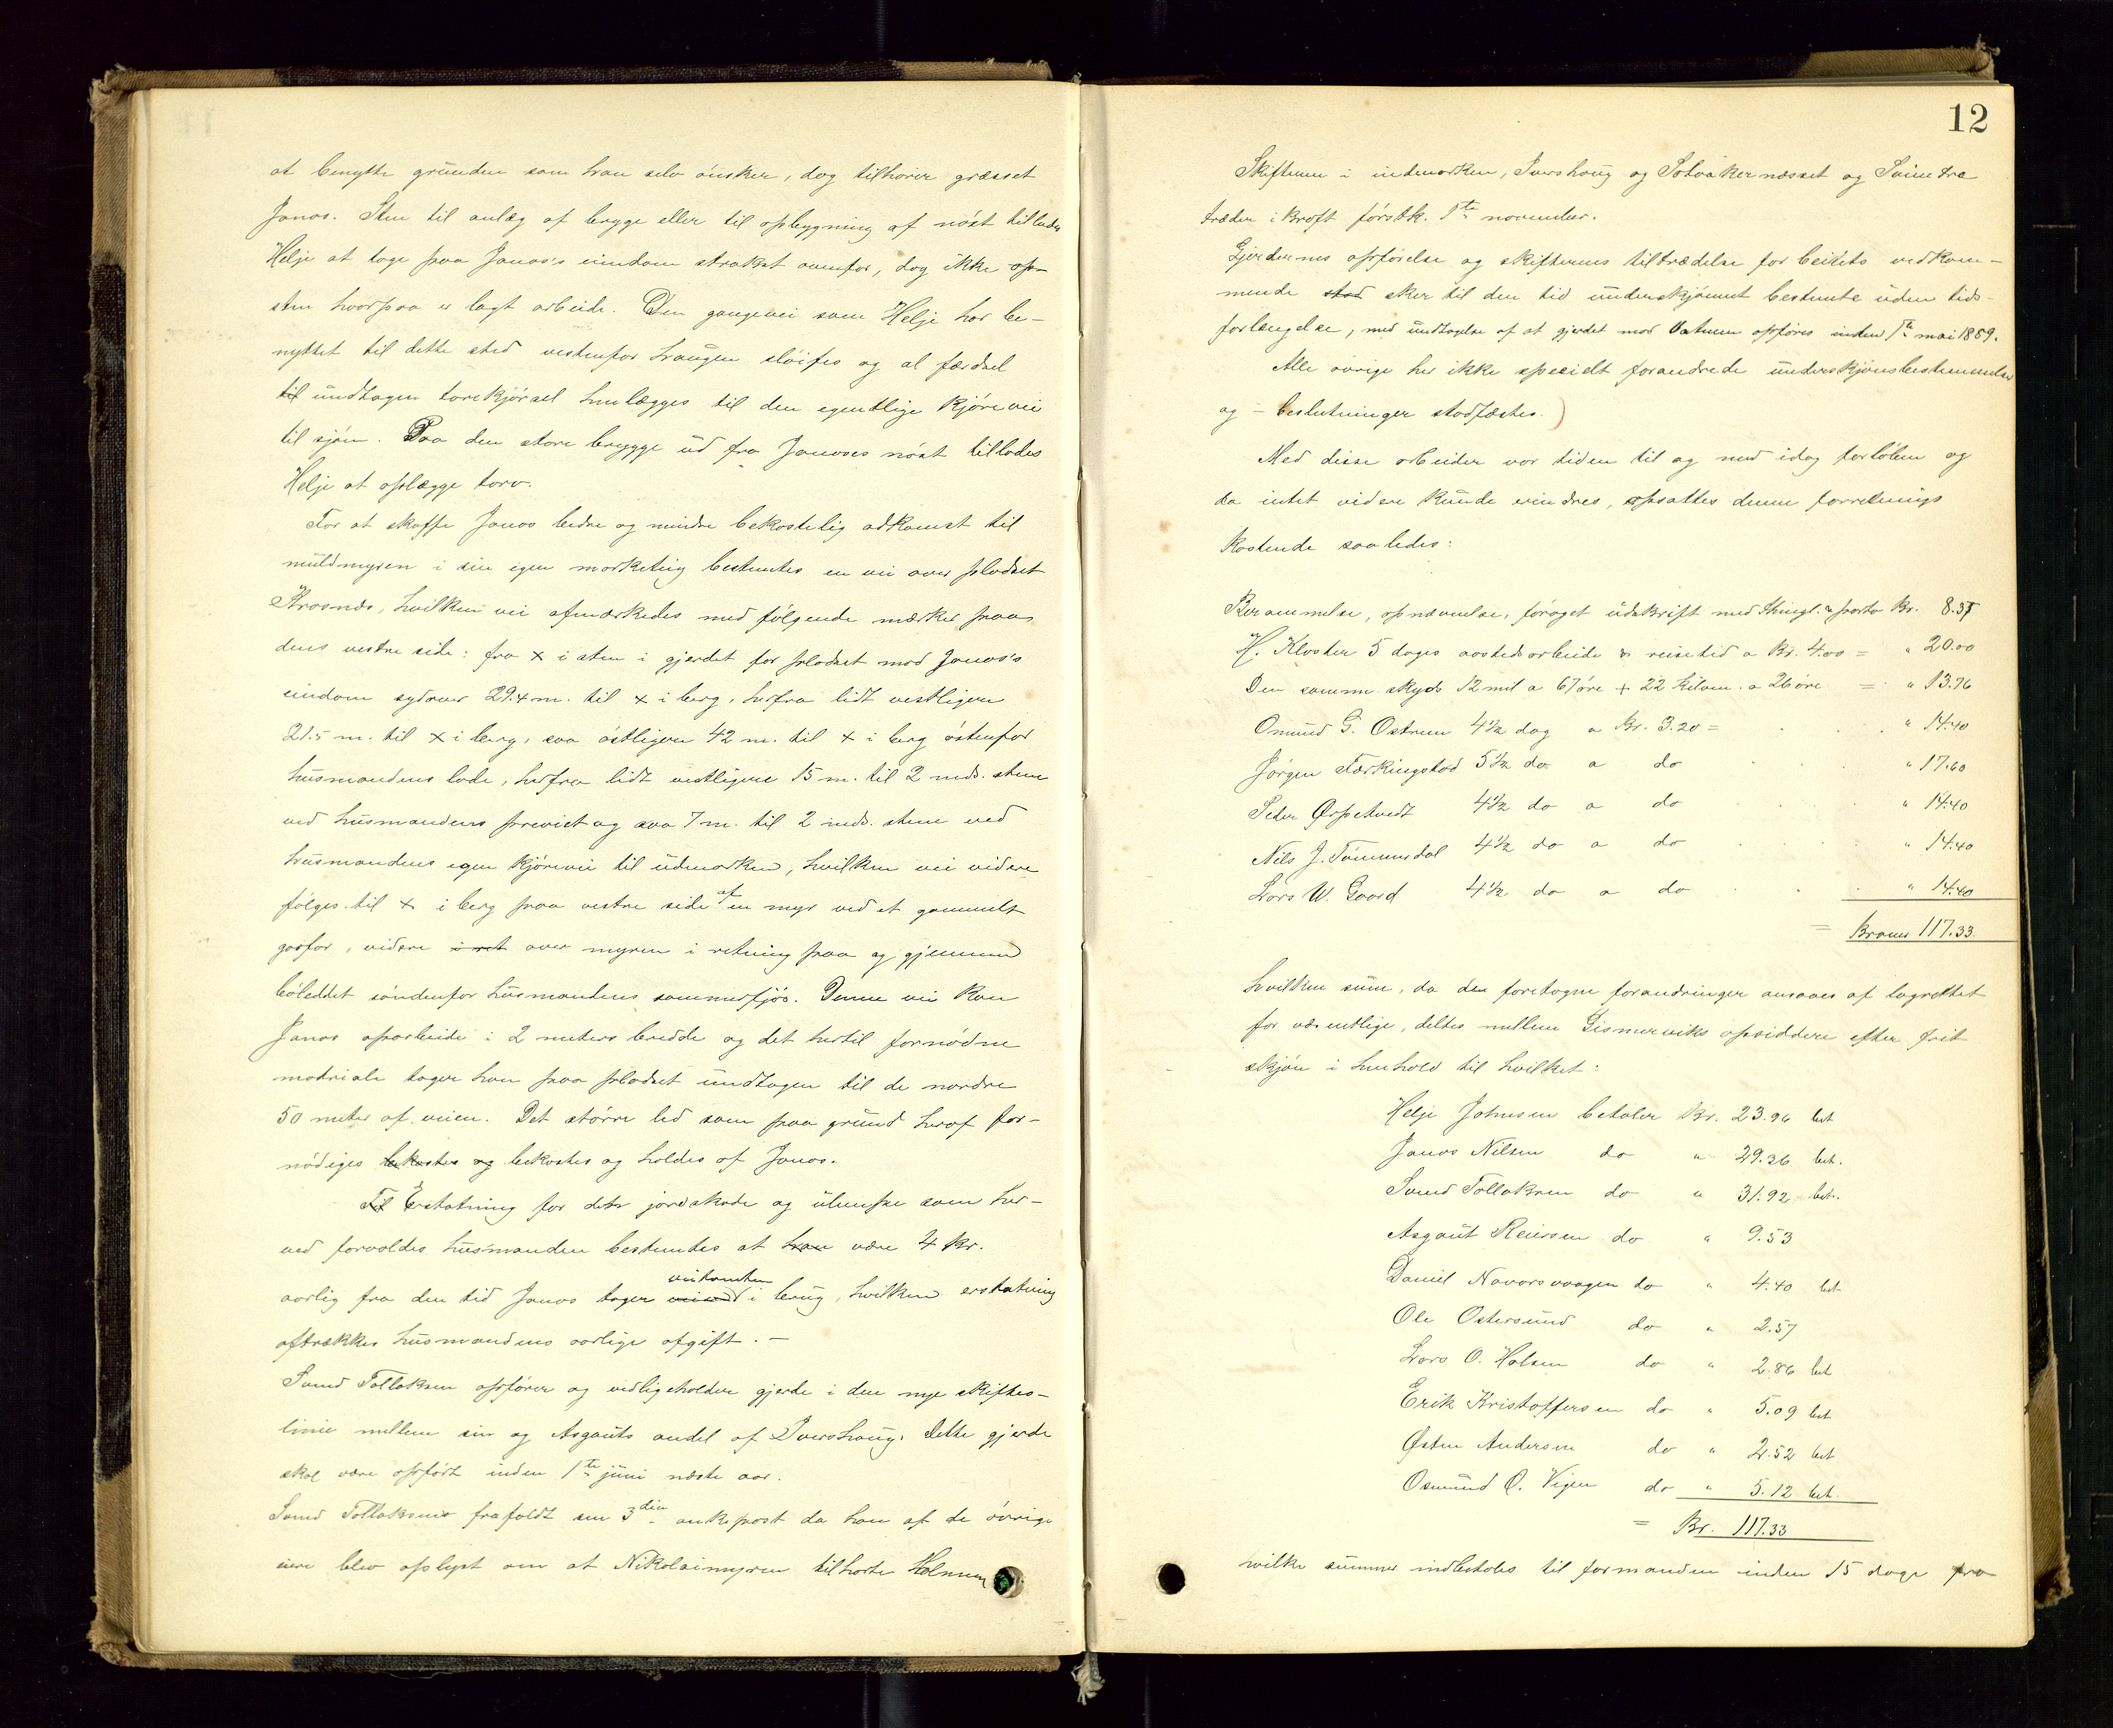 at benytte grunden som han selv ønsker, dog tilhører græsset
Jonas. Sten til anlæg af brygge eller til opbygning af nøst tillades
Helje at tage paa Jonas's eiendom strakst ovenfor, dog ikke op=
sten hvorpaa er lagt arbeide. Den gangevei som Helje har be-
nyttet til dette sted vestenfor haugen sløifes og al færdsel
til undtagen torvkjørsel henlægges til den egentlige kjørevei
til sjøen. Paa den store brygge ud fra Jonases nøst tillades
Helje at oplægge torv.
For at skaffe Jonas bedre og mindre bekostelig adkomst til
muldmyren i sin egen markteig bestemtes en vei over pladset
Krosnæs, hvilken vei afmærkedes med følgende mærker paa
dens vestre side: fra × i sten i gjerdet for pladset mod Jonas's
eiendom sydover 29.4 m. til × i berg, herfra lidt vestligere
21.5 m. til × i berg, saa østligere 42 m. til × i berg østenfor
husmandens lade, herfra lidt vestligere 15 m. til 2 neds. stene
ved husmandens og saa 7 m. til 2 neds. stene ved
husmandens egen kjørevei til udmarken, hvilken vei videre
følges til × i berg paa vestre side af en myr ved et gammelt
garfar, videre i ret over myren i retning paa og gjennem
bøleddet søndenfor husmandens sommerfjøs. Denne vei kan
Jonas oparbeide i 2 meters bredde og det hertil fornødne
matriale tager han paa pladset undtagen til de nordre
50 meter af veien. Det større led som paa grund heraf for-
nødiges bekostes og bekostes og holdes af Jonas.
Til Erstatning for den jordskade og ulempe som her-
ved forvoldes husmanden bestemtes at han være 4 kr.
aarlig fra den tid Jonas tager veitomten i brug, hvilken erstatning
aftrækkes husmandens aarlige afgift. -
Svend Tollaksen opfører og vedligeholder gjerde i den nye skiftes-
linie mellem sin og Asgauts andel af Ivershaug. Dette gjerde
skal være opført inden 1te juni næste aar.
Svend Tollaksen frafaldt sin 3die ankepost da han af de øvrige
eiere blev oplyst om at Nikolaimyren tilhørte Holmen
12
Skifterne i indmarken, Ivershaug og Solvakernæsset og
træder i kraft førstk. 1te november.
Gjerdernes opførelse og skifternes tiltrædelse for beitets vedkom-
mende stad sker til den tid underskjønnet bestemte uden tids-
forlængelse, med undtagelse af at gjerdet mod Vatnem opføres inden 1te mai 1889.
Alle øvrige her ikke specielt forandrede underskjønsbestemmelser
og - beslutninger stadfæstes.)
Med disse arbeider var tiden til og med idag forløben og
da intet videre kunde erindres, opsattes denne forretnings
kostende saaledes:
Berammelse, opnævnelse, foraget udskrift med thingl. & porto Kr. 8.37
H. Kloster 5 dages aastedsarbeide & reisetid a Kr. 4.00 = " 20.00
Den samme skyds 12 mil a 67 øre + 22 kilom. a 26 øre = " 13.76
Omund G. Østrem 4½ dag a Kr. 3.20 = " 14.40
Jørgen Førkingstad 5½ do a do " 17.60
Peder Ørpetvedt 4½ do a do " 14.40
Nils J. Tømmerdal 4½ do a do " 14.40
Lars W. Gaard 4½ do a do " 14.40
= Kroner 117.33.
hvilken sum, da den foretagne forandringer ansaaes af lagrettet
for væsentlige, deltes mellem Gismerviks opsiddere efter frit
skjøn i henhold til hvilket:
Helje Johnsen betaler Kr. 23.96 bet
Jonas Nilsen do " 29.36 bet.
Svend Tollaksen do " 31.92 bet.
Asgaut Reiersen do " 9.53
Daniel Navarsvaagen do " 4.40 bet
Ole Østersund do " 2.57
Lars O. Halsen do " 2.86 bet
Erik Kristoffersen do " 5.09 bet
Østen Andersen do " 2.52 bet
Osmund O. Vigen do " 5.12 bet.
= Kr. 117.33
hvilke summer indbetales til formanden inden 15 dage fra